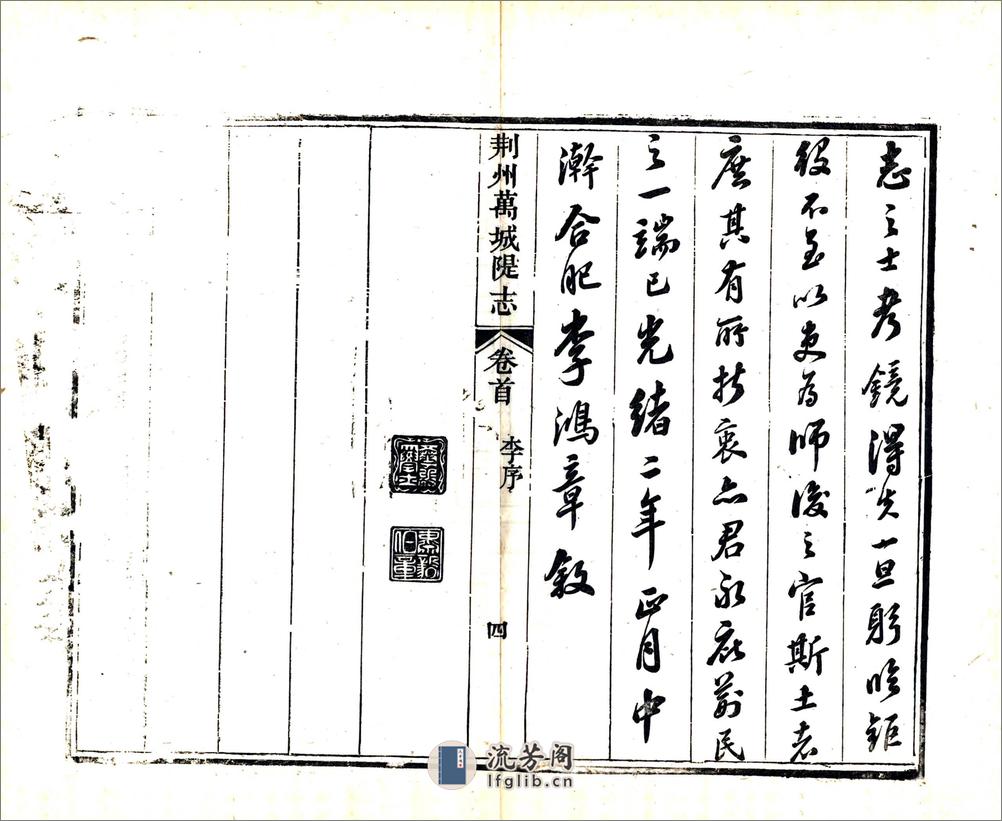 志之士考鏡得失一旦躬臨鉅
役不至以吏為師後之官斯土者
庶其有所折衷亦君永庇荊民
之一端已光緒二年正月中
澣合肥李鴻章敘
荆州萬城隄志 卷首 李序 四
流芳阁
lfglib.cn